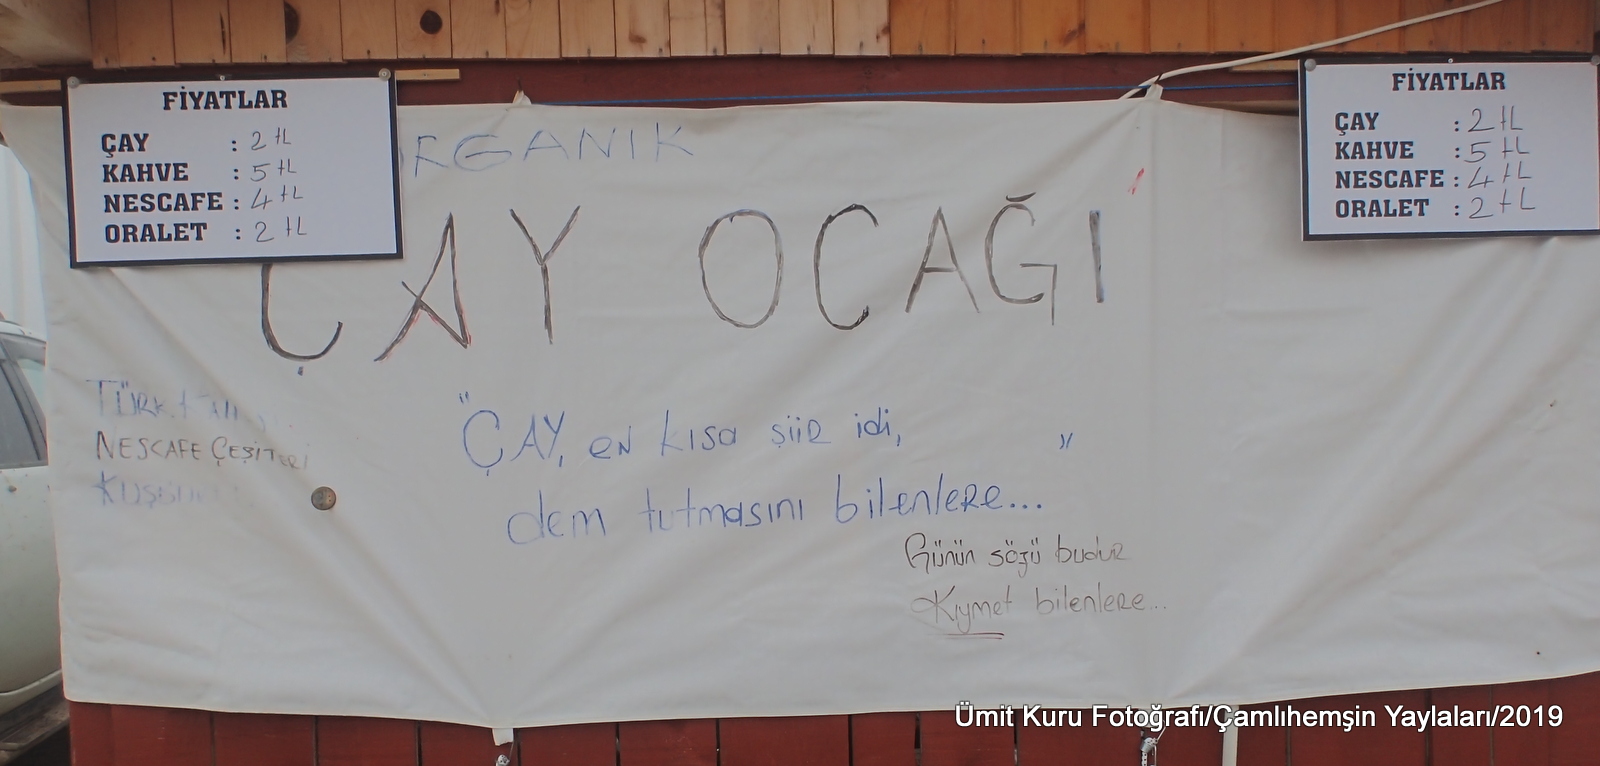 FİYATLAR
ÇAY : 2 tL
KAHVE : 5 tL
NESCAFE : 4 tL
ORALET : 2 tL
FİYATLAR
ÇAY : 2 tL
KAHVE : 5 tL
NESCAFE : 4 tL
ORALET : 2 tL
RGANIK
ÇAY OCAĞI
NESCAFE ÇEŞİTLERİ
"ÇAY, en kısa şiir idi,
dem tutmasını bilenlere... "
Günün sözü budur
Kıymet bilenlere...
Ümit Kuru Fotoğrafı/Çamlıhemşin Yaylaları/2019